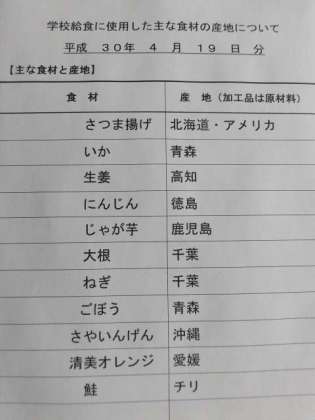 学校給食に使用した主な食材の産地について
平成 ３０年 ４ 月 １９ 日 分
【主な食材と産地】
食 材 産 地（加工品は原材料）
さつま揚げ 北海道・アメリカ
いか 青森
生姜 高知
にんじん 徳島
じゃが芋 鹿児島
大根 千葉
ねぎ 千葉
ごぼう 青森
さやいんげん 沖縄
清美オレンジ 愛媛
鮭 チリ